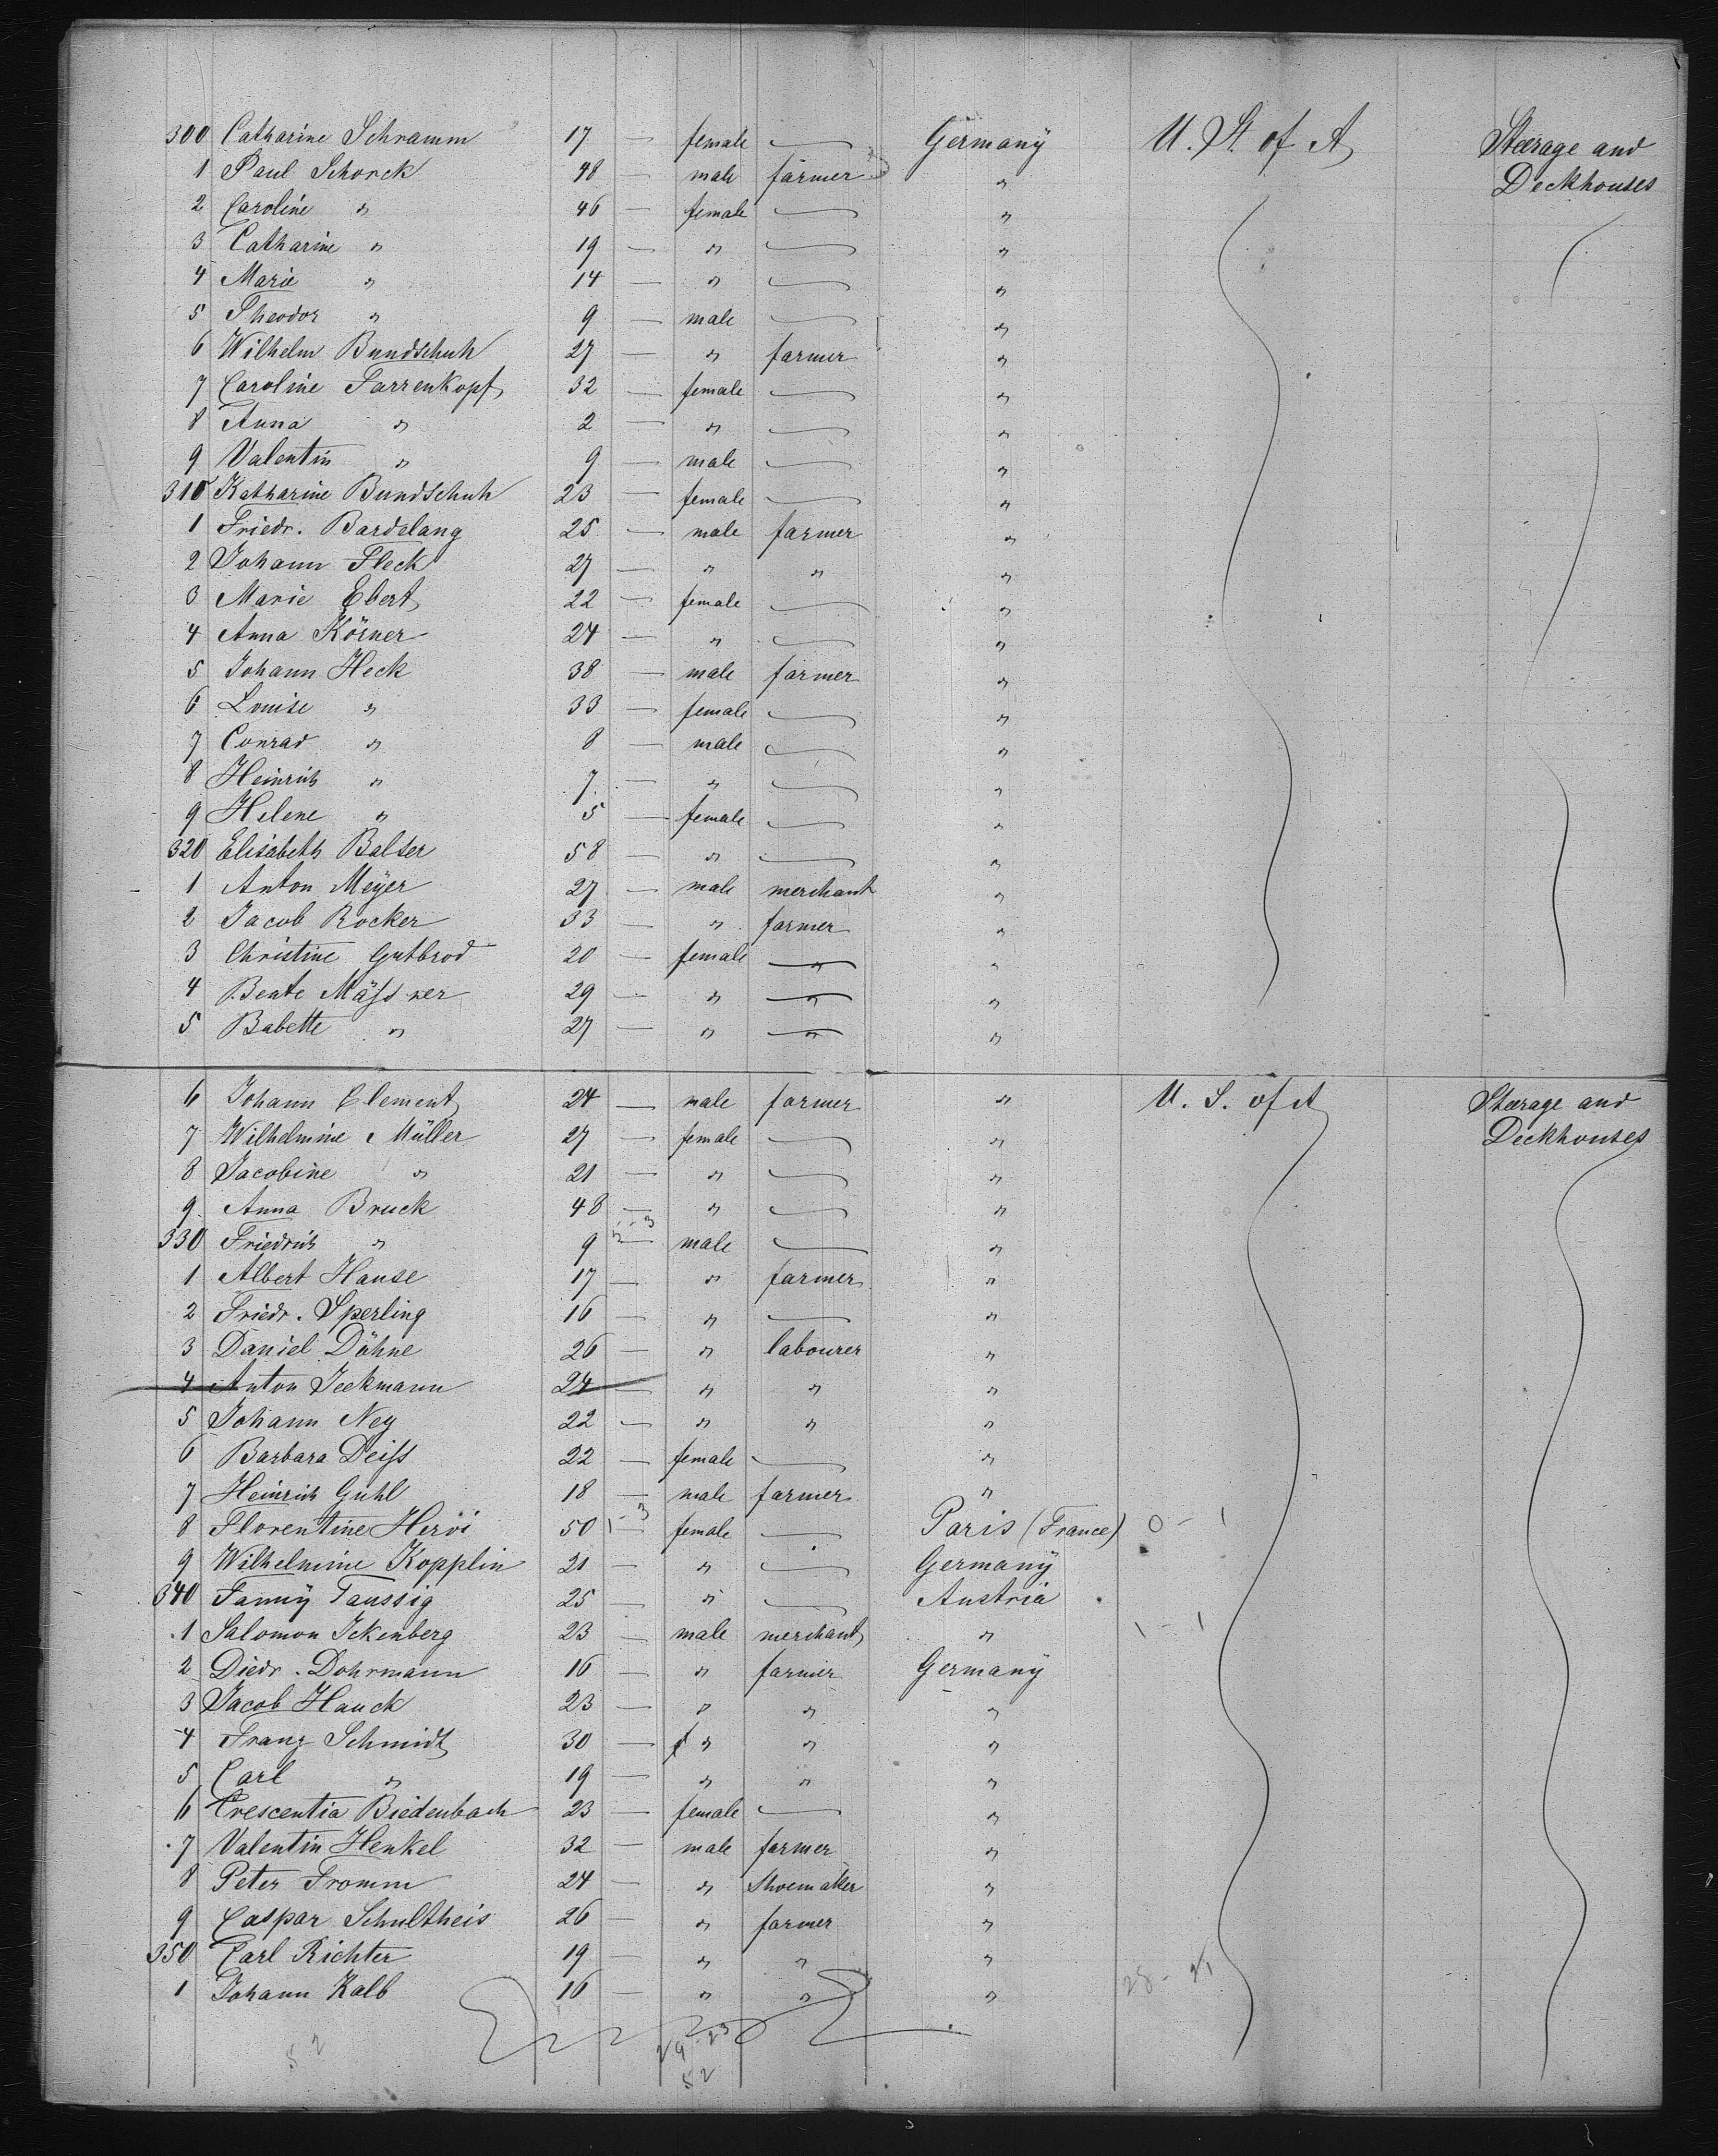 300 Catharine Schramm 17 — female — Germany U. St. of A Steerage and
1 Paul Schorck 48 — male farmer " Deckhouses
2 Caroline " 46 — female — "
3 Catharine " 19 — " — "
4 Marie " 14 — " — "
5 Theodor " 9 — male — "
6 Wilhelm Bundschuh 27 — " farmer "
7 Caroline Farrenkopf 32 — female — "
8 Anna " 2 — " — "
9 Valentin " 9 — male — "
310 Katharine Bundschuh 23 — female — "
1 Friedr. Bardelang 25 — male farmer "
2 Johann Fleck 27 — " " "
3 Marie Ebert 22 — female — "
4 Anna Körner 24 — " — "
5 Johann Heck 38 — male farmer "
6 Louise " 33 — female — "
7 Conrad " 8 — male — "
8 Heinrich " 7 — " — "
9 Helene " 5 — female — "
320 Elisabeth Balser 58 — " — "
1 Anton Meÿer 27 — male merchant "
2 Jacob Rocker 33 — " farmer "
3 Christine Gutbrod 20 — female " "
4 Beate Mäßner 29 — " " "
5 Babette " 27 — " " "
6 Johann Clement 24 — male farmer " U. S. of A Steerage and
7 Wilhelmine Müller 27 — female — " Deckhouses
8 Jacobine " 21 — " — "
9 Anna Bruck 48 — " — "
330 Friedrich " 9 — male — "
1 Albert Hause 17 — " farmer "
2 Friedr. Sperling 16 — " — "
3 Daniel Dähne 26 — " labourer "
4 Anton Jeckmann 24 — " " "
5 Johann Ney 22 — " " "
6 Barbara Deiß 22 — female — "
7 Heinrich Guhl 18 — male farmer "
8 Florentine Hervi 50 — female — Paris (France) 0 - 1
9 Wilhelmine Kopplin 21 — " — Germanÿ
340 Fannÿ Taussig 25 — " — Austria
1 Salomon Ickenberg 23 — male merchant " 1 - 1
2 Diedr. Dohrmann 16 — " farmer Germanÿ
3 Jacob Hauck 23 — " " "
4 Franz Schmidt 30 — " " "
5 Carl " 19 — " " "
6 Crescentia Biedenbach 23 — female — "
7 Valentin Henkel 32 — male farmer "
8 Peter Fromm 24 — " Shoemaker "
9 Caspar Schultheis 26 — " farmer "
350 Carl Richter 19 — " " "
1 Johann Kalb 16 — " " "
29-23
52 52